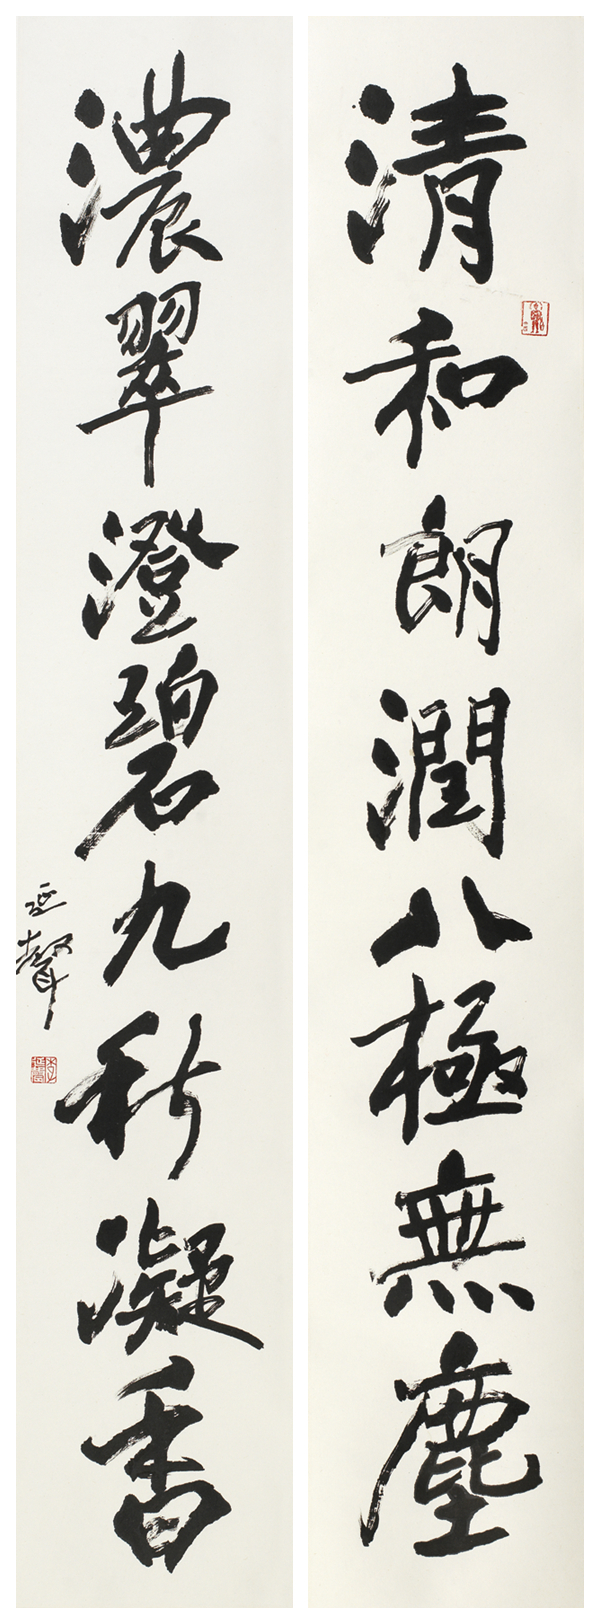 清和朗潤八極無塵
濃翠澄碧九秋凝香
延聲